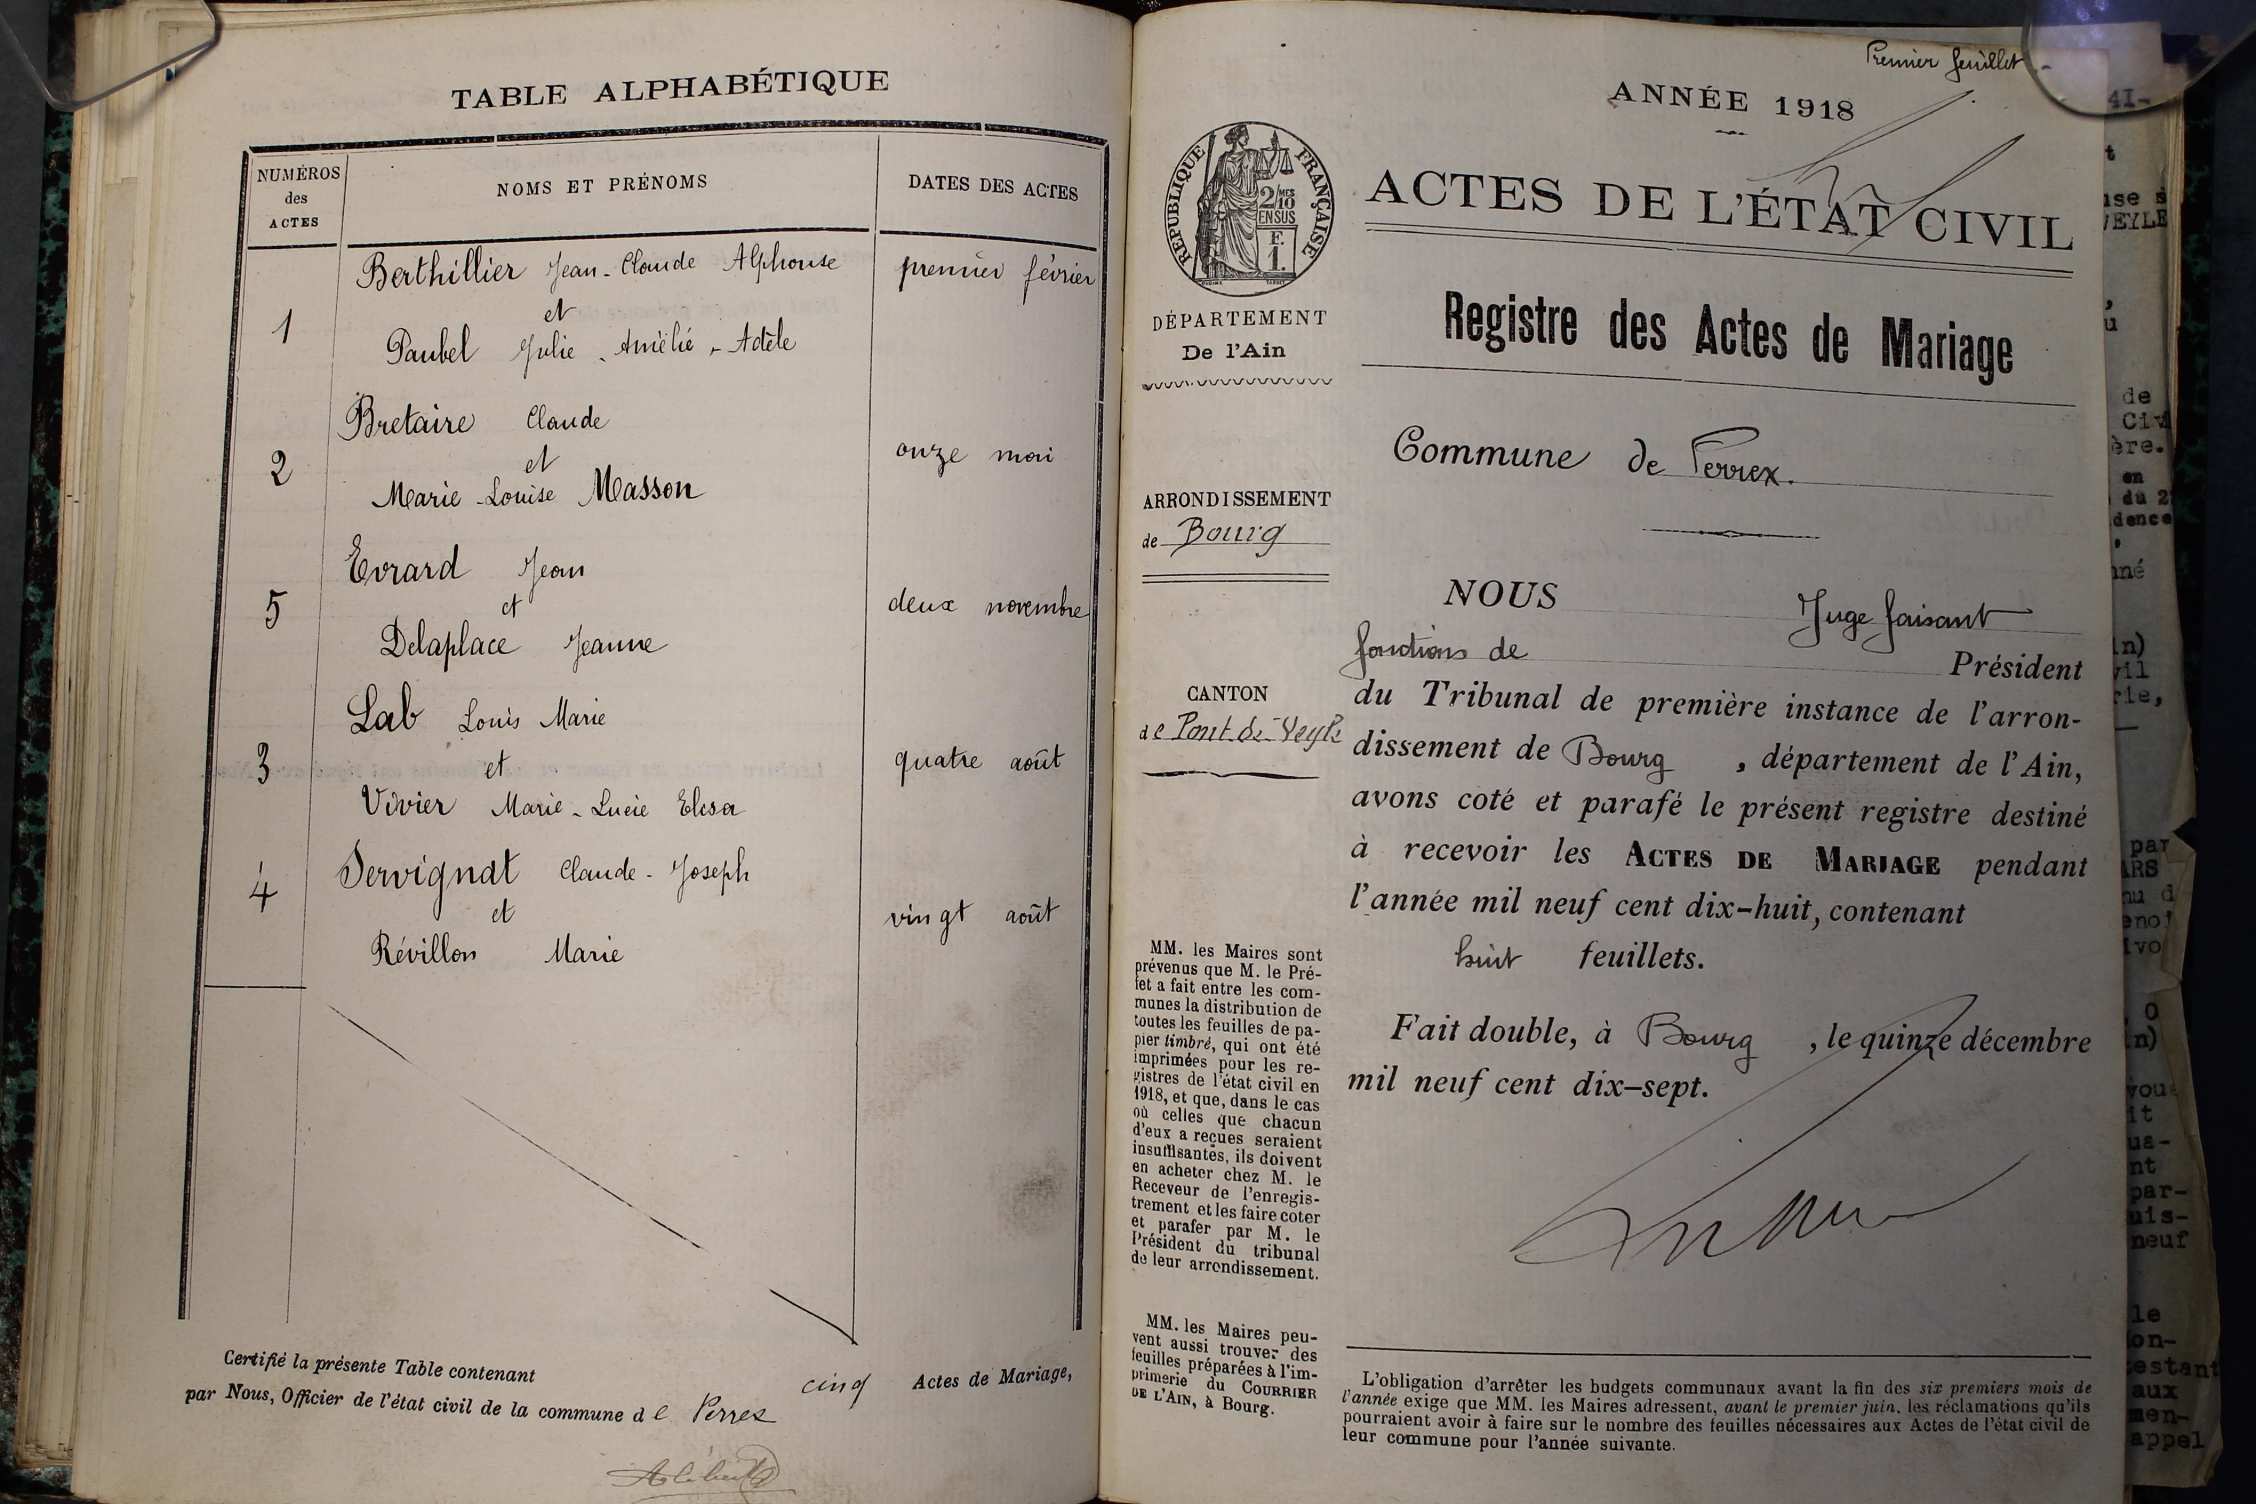 TABLE ALPHABÉTIQUE
NUMÉROS
des
ACTES
NOMS ET PRÉNOMS
DATES DES ACTES
Berthillier Jean-Claude Alphonse
premier février
1
et
Paubel Julie - Amélie - Adèle
Bretaire Claude
2
et
onze mai
Marie-Louise Masson
Evrard Jean
5
et
deux novembre
Delaplace Jeanne
Lab Louis Marie
3
et
quatre août
Vivier Marie-Lucie Elisa
Servignat Claude-Joseph
4
et
vingt août
Révillon Marie
Certifié la présente Table contenant cinq Actes de Mariage,
par Nous, Officier de l'état civil de la commune de Perrex
Premier feuillet
ANNÉE 1918
ACTES DE L'ÉTAT CIVIL
Registre des Actes de Mariage
Commune de Perrex.
RÉPUBLIQUE FRANÇAISE
2/10 MES
EN SUS
F.
1.
DÉPARTEMENT
De l'Ain
ARRONDISSEMENT
de Bourg
CANTON
de Pont-de-Veyle
MM. les Maires sont
prévenus que M. le Pré-
fet a fait entre les com-
munes la distribution de
toutes les feuilles de pa-
pier timbré, qui ont été
imprimées pour les re-
gistres de l'état civil en
1918, et que, dans le cas
où celles que chacun
d'eux a reçues seraient
insuffisantes, ils doivent
en acheter chez M. le
Receveur de l'enregis-
trement et les faire coter
et parafer par M. le
Président du tribunal
de leur arrondissement.
MM. les Maires peu-
vent aussi trouver des
feuilles préparées à l'im-
primerie du COURRIER
DE L'AIN, à Bourg.
NOUS Juge faisant
fonctions de Président
du Tribunal de première instance de l'arron-
dissement de Bourg , département de l'Ain,
avons coté et parafé le présent registre destiné
à recevoir les ACTES DE MARIAGE pendant
l'année mil neuf cent dix-huit, contenant
huit feuillets.
Fait double, à Bourg , le quinze décembre
mil neuf cent dix-sept.
L'obligation d'arrêter les budgets communaux avant la fin des six premiers mois de
l'année exige que MM. les Maires adressent, avant le premier juin, les réclamations qu'ils
pourraient avoir à faire sur le nombre des feuilles nécessaires aux Actes de l'état civil de
leur commune pour l'année suivante.